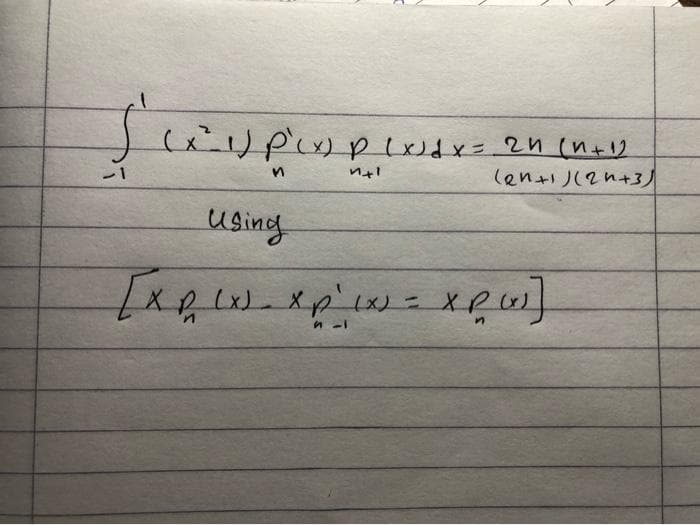 ∫_{-1}^{1} (x²-1) P'_n(x) P_{n+1}(x) dx = 2n (n+1) / (2n+1)(2n+3)
using
[x P_n(x) - x P'_{n-1}(x) = x P_n(x)]